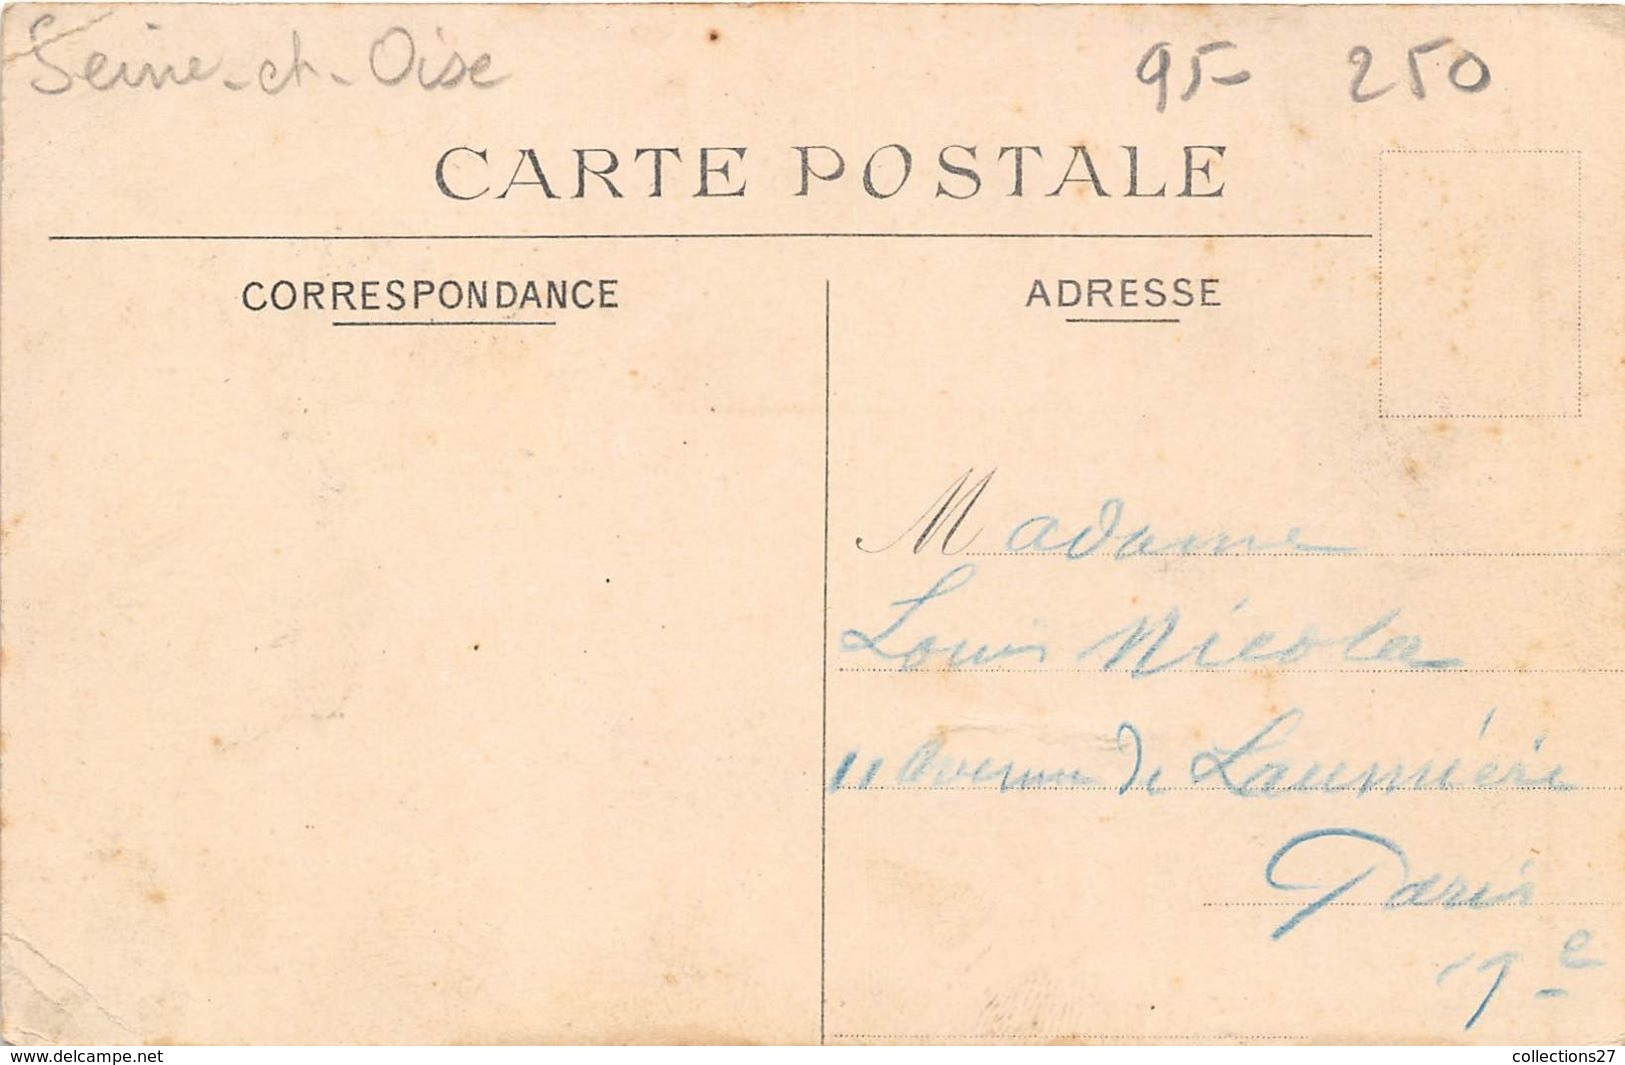 Seine-et-Oise
95- 250
CARTE POSTALE
CORRESPONDANCE
ADRESSE
Madame
Louis Nicolas
11 Avenue de Laumière
Paris
19e
www.delcampe.net
collections27